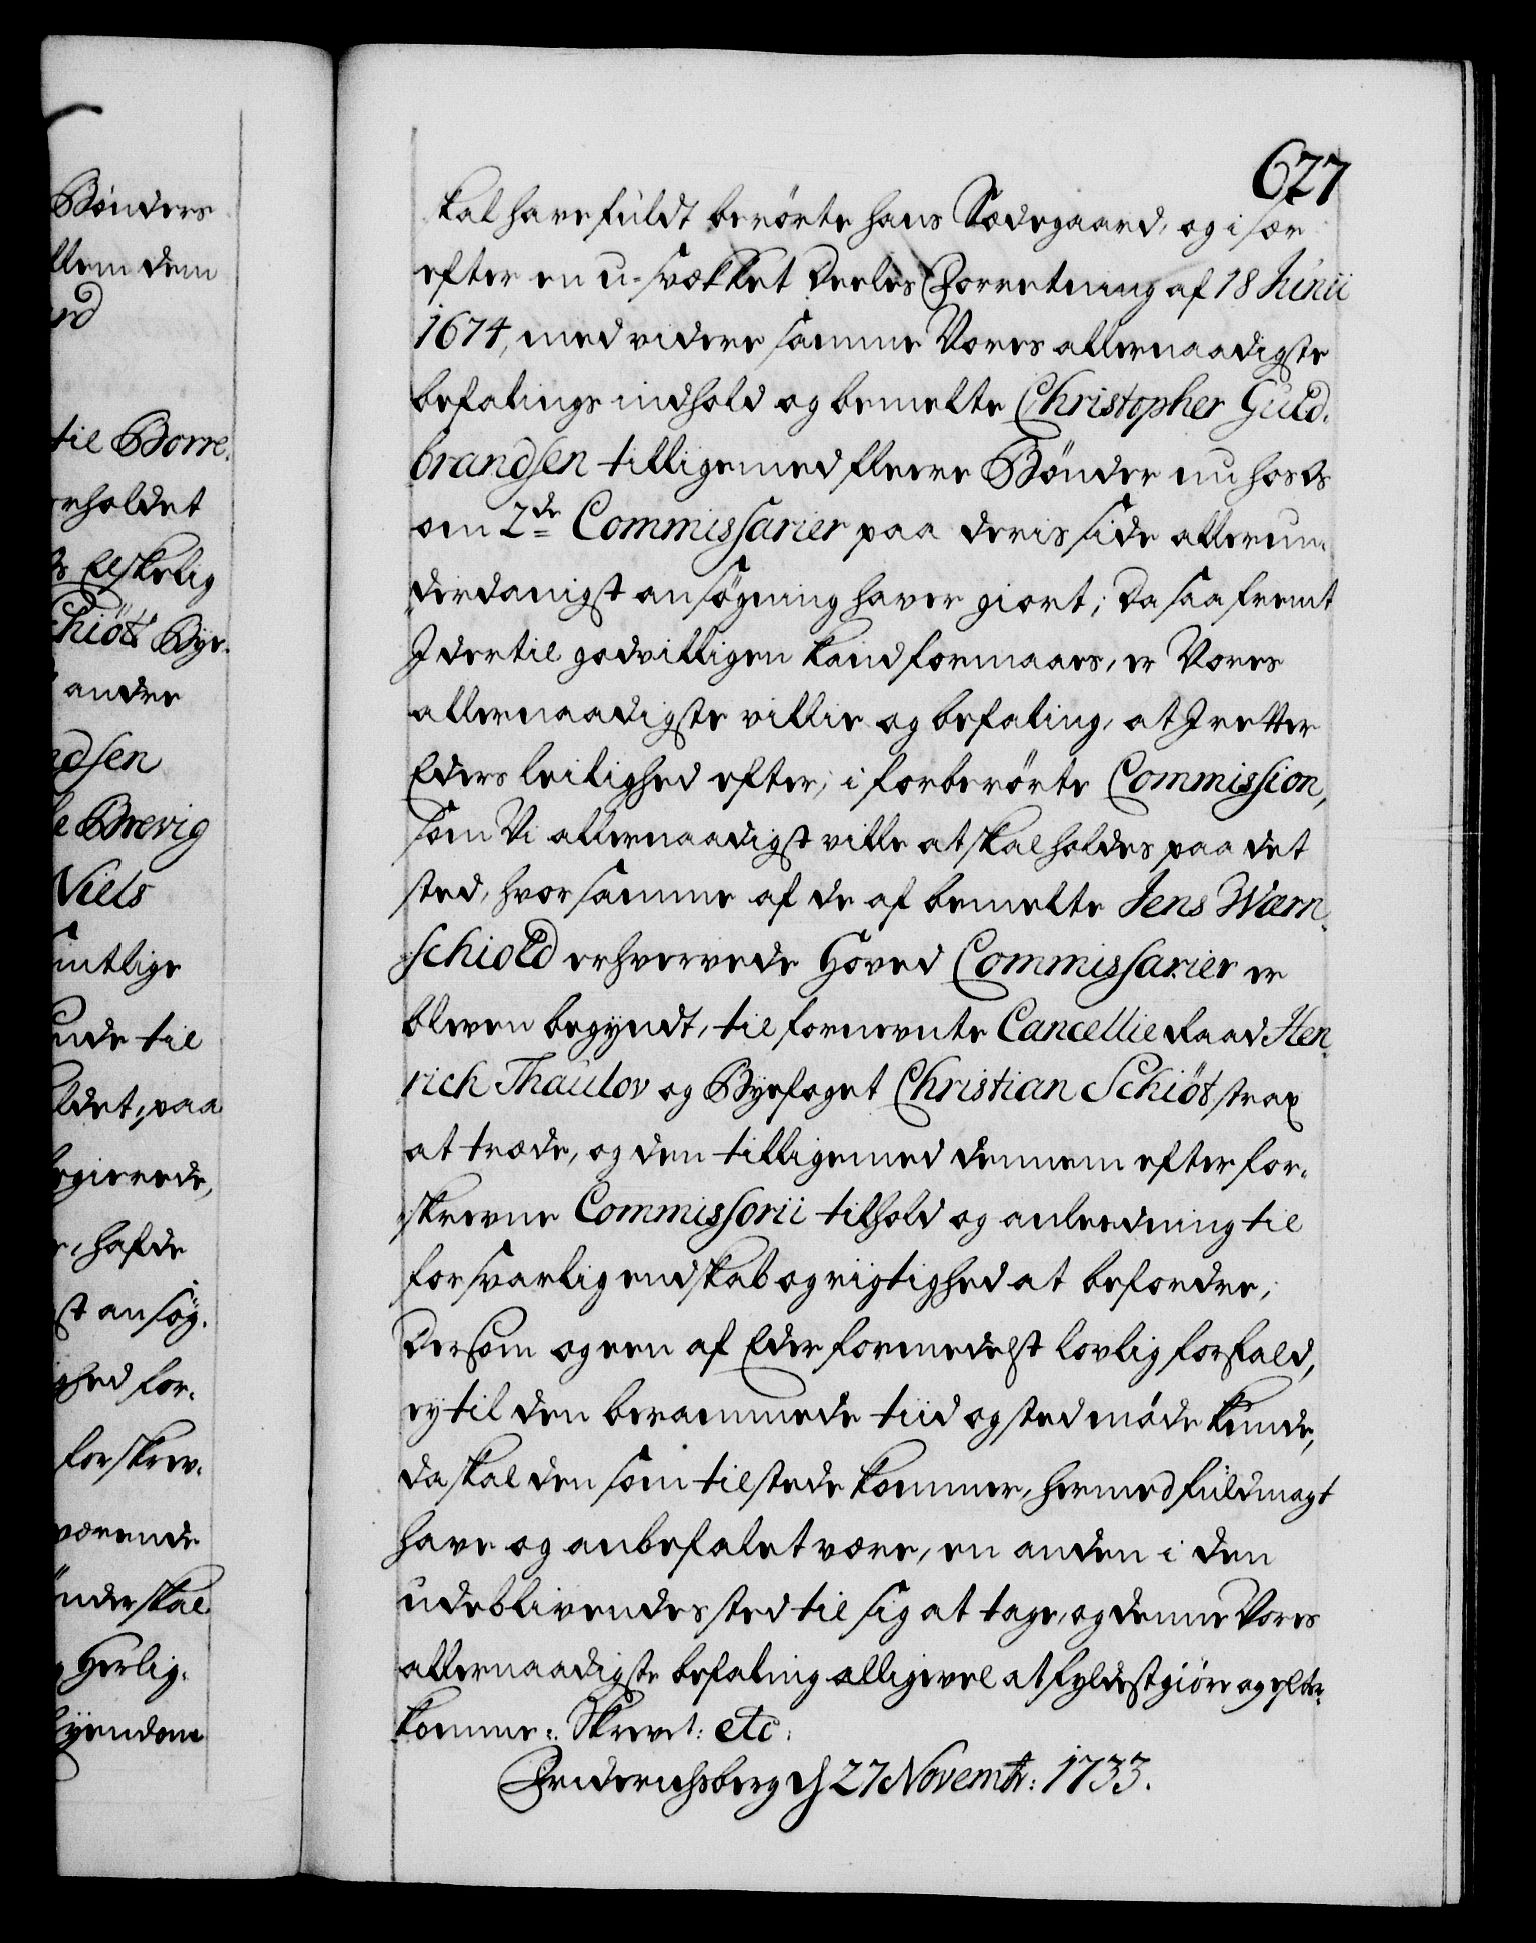 Bønders
llem dem
rd
til Borre,
erholdet
s Elskelig
Schiöt Bye-
andre
ndsen
le Brevig
Niels
mtlige
unde til
ldet, paa
egierede,
r, hafde
st ansøg-
ghed for-
forskrev-
værende
ønder skal
Herlig-
Eyendom
677
skal have fuldt berörte hans Sædegaard, og i sær
efter en u-svækket Deeles Forretning af 18 Junii
1674, med videre samme Vores allernaadigste
befalings indhold og bemelte Christopher Guld-
brandsen tilligemed fleere Bönder nu hos Os
om 2de Commissarier paa deris side allerun-
derdanigst ansögning haver giort; Da saafremt
I dertil godvilligen kand formaaes, er Vores
allernaadigste villie og befaling, at I retter
Eders leilighed efter, i forberörte Commission,
som Vi allernaadigst ville at skal holdes paa det
sted, hvor samme af de af bemelte Jens Wærn-
schiold erhvervede Hoved Commissarier er
bleven begyndt, til fornevnte Cancellie Raad Hen-
rich Thaulov og Byefoget Christian Schiöt strax
at træde, og den tilligemed dennem efter for-
skrevne Commissorii tilhold og anleedning til
forsvarlig endskab og rigtighed at befordre,
Dersom og een af Eder formedelst lovlig forfald,
ey til den berammede tiid og sted möde kunde,
da skal den som tilstede kommer, hermed fuldmagt
have og anbefalet være, en anden i den
udeblivendes sted til sig at tage, og denne Vores
allernaadigste befaling alligevel at fyldestgiöre og efter-
komme. Skrevet: etc:
Friderichsberg d 27 Novembr: 1733.